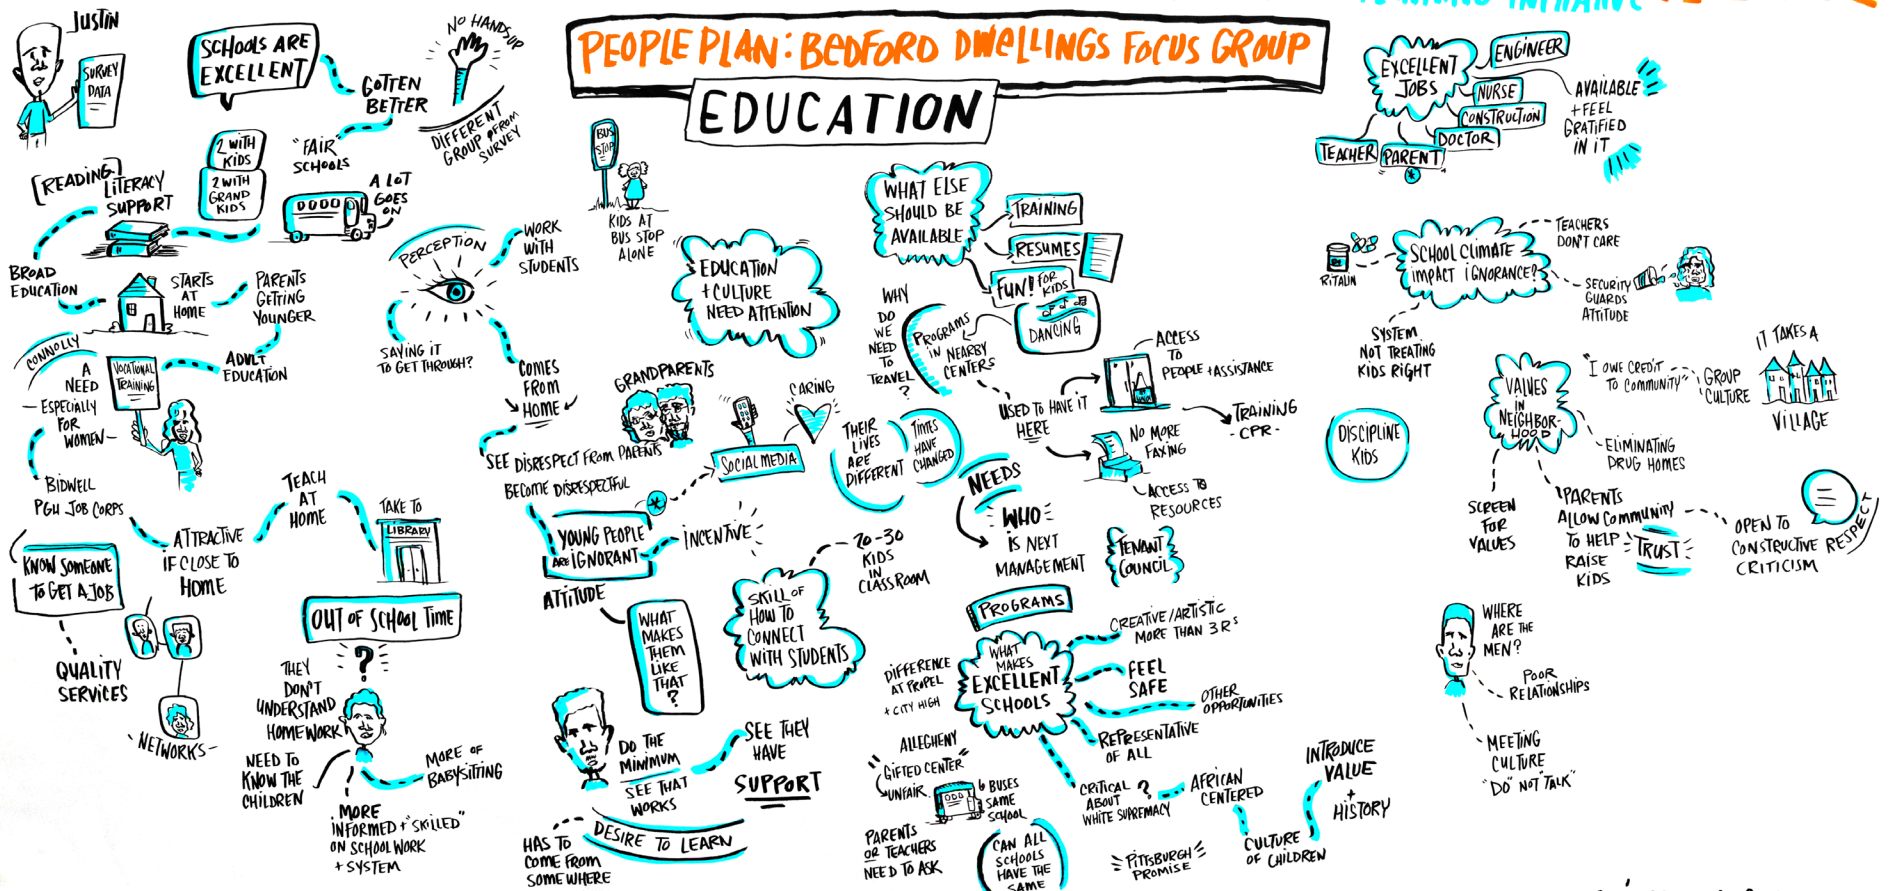 PEOPLE PLAN: BEDFORD DWELLINGS FOCUS GROUP
EDUCATION
JUSTIN
SURVEY
DATA
SCHOOLS ARE
EXCELLENT
GOTTEN
BETTER
NO HANDS UP
DIFFERENT
GROUP FROM
SURVEY
"FAIR
SCHOOLS
2 WITH
KIDS
2 WITH
GRAND
KIDS
A LOT
GOES
ON
[READING]
LITERACY
SUPPORT
BROAD
EDUCATION
STARTS
AT
HOME
PARENTS
GETTING
YOUNGER
ADULT
EDUCATION
CONNOLLY
A
NEED
- ESPECIALLY
FOR
WOMEN -
VOCATIONAL
TRAINING
BIDWELL
PGH JOB CORPS
ATTRACTIVE
IF CLOSE TO
HOME
TEACH
AT
HOME
TAKE TO
LIBRARY
KNOW SOMEONE
TO GET A JOB
QUALITY
SERVICES
- NETWORKS -
OUT OF SCHOOL TIME
?
THEY
DON'T
UNDERSTAND
HOMEWORK
NEED TO
KNOW THE
CHILDREN
MORE OF
BABYSITTING
MORE
INFORMED + "SKILLED"
ON SCHOOL WORK
+ SYSTEM
PERCEPTION
WORK
WITH
STUDENTS
SAYING IT
TO GET THROUGH?
COMES
FROM
HOME
SEE DISRESPECT FROM PARENTS
BECOME DISRESPECTFUL
BUS
STOP
KIDS AT
BUS STOP
ALONE
EDUCATION
+ CULTURE
NEED ATTENTION
GRANDPARENTS
CARING
SOCIAL MEDIA
YOUNG PEOPLE
ARE IGNORANT
INCENTIVE
ATTITUDE
WHAT
MAKES
THEM
LIKE
THAT
?
DO THE
MINIMUM
SEE THAT
WORKS
SEE THEY
HAVE
SUPPORT
DESIRE TO LEARN
HAS TO
COME FROM
SOMEWHERE
SKILL OF
HOW TO
CONNECT
WITH STUDENTS
20-30
KIDS
IN
CLASSROOM
THEIR
LIVES
ARE
DIFFERENT
TIMES
HAVE
CHANGED
WHAT ELSE
SHOULD BE
AVAILABLE
TRAINING
RESUMES
FUN! FOR
KIDS
DANCING
WHY
DO
WE
NEED
TO
TRAVEL
?
PROGRAMS
IN NEARBY
CENTERS
USED TO HAVE IT
HERE
ACCESS
TO
PEOPLE + ASSISTANCE
TRAINING
- CPR -
NO MORE
FAXING
ACCESS TO
RESOURCES
NEEDS
WHO
IS NEXT
MANAGEMENT
TENANT
COUNCIL
PROGRAMS
WHAT
MAKES
EXCELLENT
SCHOOLS
CREATIVE/ARTISTIC
MORE THAN 3 RS
FEEL
SAFE
OTHER
OPPORTUNITIES
REPRESENTATIVE
OF ALL
DIFFERENCE
AT PROPEL
+ CITY HIGH
ALLEGHENY
"GIFTED CENTER"
UNFAIR
6 BUSES
SAME
SCHOOL
PARENTS
OR TEACHERS
NEED TO ASK
CAN ALL
SCHOOLS
HAVE THE
SAME
CRITICAL ?
ABOUT
WHITE SUPREMACY
AFRICAN
CENTERED
CULTURE
OF CHILDREN
INTRODUCE
VALUE
+
HISTORY
"PITTSBURGH
PROMISE"
EXCELLENT
JOBS
ENGINEER
NURSE
CONSTRUCTION
DOCTOR
PARENT
TEACHER
AVAILABLE
+ FEEL
GRATIFIED
IN IT
SCHOOL CLIMATE
IMPACT IGNORANCE?
RITALIN
TEACHERS
DON'T CARE
SECURITY
GUARDS
ATTITUDE
SYSTEM
NOT TREATING
KIDS RIGHT
DISCIPLINE
KIDS
VALUES
IN
NEIGHBOR-
HOOD
"I OWE CREDIT
TO COMMUNITY"
GROUP
CULTURE
IT TAKES A
VILLAGE
ELIMINATING
DRUG HOMES
SCREEN
FOR
VALUES
PARENTS
ALLOW COMMUNITY
TO HELP
RAISE
KIDS
TRUST
OPEN TO
CONSTRUCTIVE
CRITICISM
RESPECT
WHERE
ARE THE
MEN?
POOR
RELATIONSHIPS
MEETING
CULTURE
"DO" NOT "TALK"